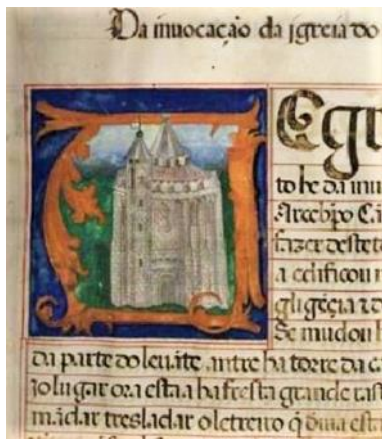 Da inuocação da igreia do
Egr
to he da inu
Arcebpo Cã
fazer deste te
a edificou
gligẽcia z d
Se mudou
da parte do leuãte, antre ha torre da c
lugar ora esta a ha fresta grande
mãdar tresladar o letreiro q̃ dizia esta